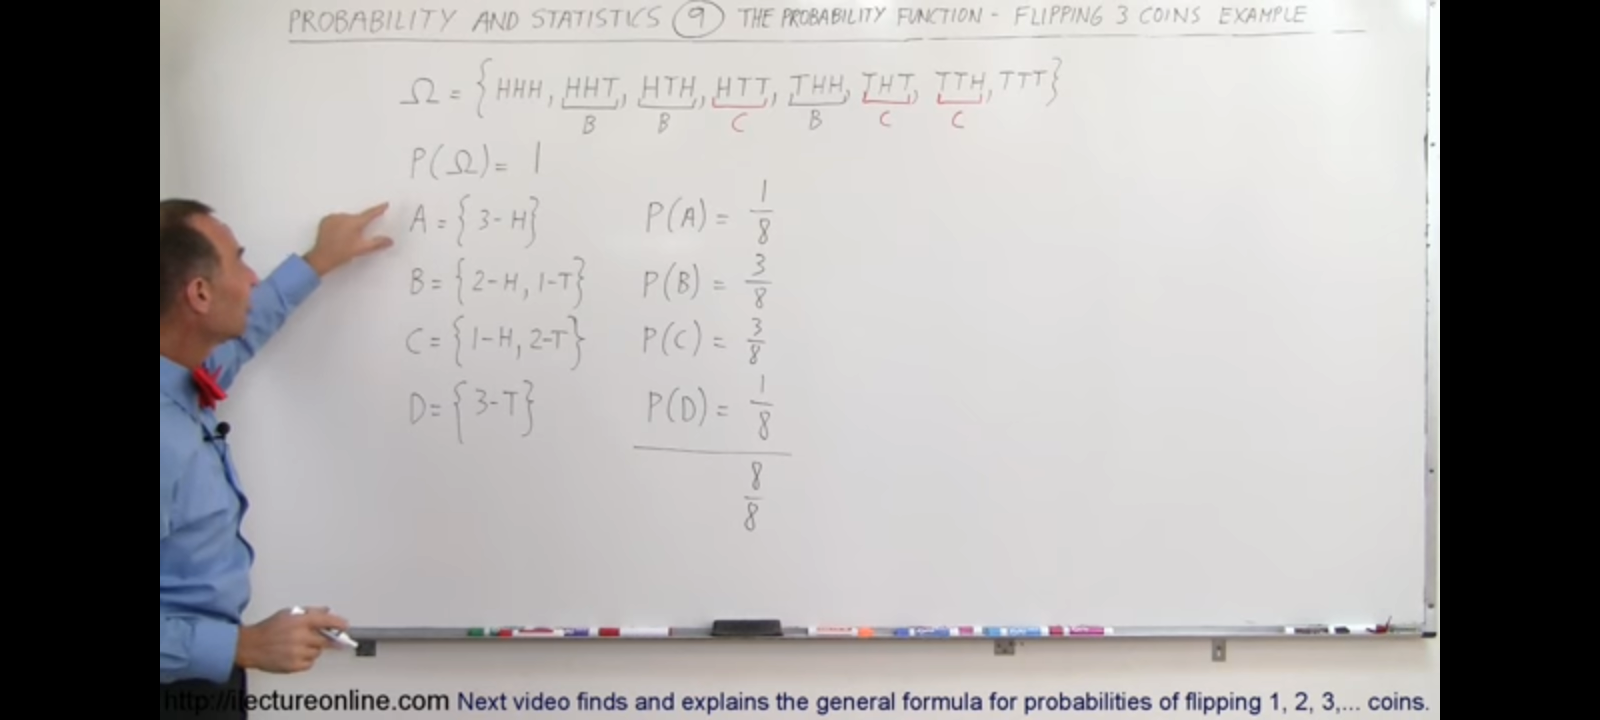 PROBABILITY AND STATISTICS 9 THE PROBABILITY FUNCTION - FLIPPING 3 COINS EXAMPLE
Ω = {HHH, HHT, HTH, HTT, THH, THT, TTH, TTT}
B B C B C C
P(Ω) = 1
A = {3-H} P(A) = 1/8
B = {2-H, 1-T} P(B) = 3/8
C = {1-H, 2-T} P(C) = 3/8
D = {3-T} P(D) = 1/8
8/8
http://ilectureonline.com Next video finds and explains the general formula for probabilities of flipping 1, 2, 3,... coins.